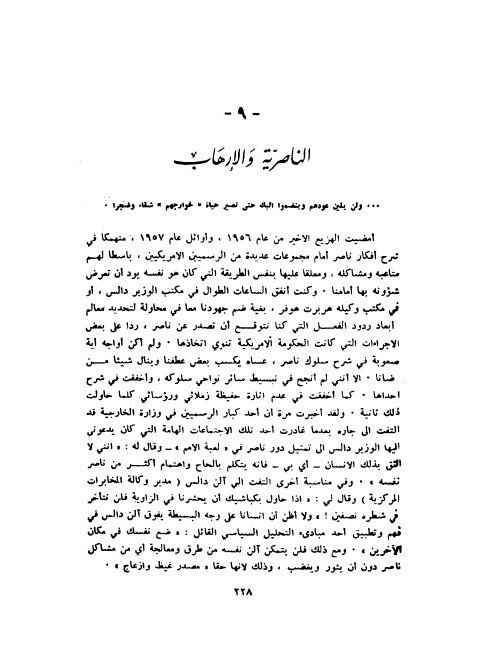 - ٩ -
الناصرية والإرهاب
٠٠٠ ولن يلين عودهم وينضموا اليك حتى تصير حياة « خوارجهم » شقاء وضجرا ٠
أمضيت الهزيع الاخير من عام ١٩٥٦ ، وأوائل عام ١٩٥٧ ، منهمكا في
شرح أفكار ناصر أمام مجموعات عديدة من الرسميين الامريكيين ، باسطا لهم
متاعبه ومشاكله ، ومعلقا عليها بنفس الطريقة التي كان هو نفسه يود أن تعرض
شؤونه بها أمامنا ٠ وكنت أنفق الساعات الطوال في مكتب الوزير دالس ، أو
في مكتب وكيله هربرت هوفر ، بغية ضم جهودنا معا في محاولة لتحديد معالم
أبعاد ردود الفعل التي كنا نتوقع أن تصدر عن ناصر ، ردا على بعض
الاجراءات التي كانت الحكومة الامريكية تنوي اتخاذها ٠ ولم أكن أواجه أية
صعوبة في شرح سلوك ناصر ، عساه يكسب بعض عطفنا وينال شيئا من
ضاننا ٠ الا أنني لم أنجح في تبسيط سائر نواحي سلوكه ، وأخفقت في شرح
احداها ٠ كما أخفقت في عدم اثارة حفيظة زملائي ورؤسائي كلما حاولت
ذلك ثانية ٠ ولقد أخبرت مرة أن أحد كبار الرسميين في وزارة الخارجية قد
التفت الى جاره بعدما غادرت أحد تلك الاجتماعات الهامة التي كان يدعوني
اليها الوزير دالس الى تمثيل دور ناصر في « لعبة الامم » ـ وقال له : « انني لا
اثق بذلك الانسان ـ أي بي ـ فانه يتكلم بالحاح واهتمام أكثر من ناصر
نفسه » ٠ وفي مناسبة أخرى التفت الي آلن دالس ( مدير وكالة المخابرات
المركزية ) وقال لي : « اذا حاول بكباشيك أن يحشرنا في الزاوية فلن نتأخر
في شطره نصفين ! » ولا أظن أن انسانا على وجه البسيطة يفوق آلن دالس في
فهم وتطبيق أحد مبادىء التحليل السياسي القائل : « ضع نفسك في مكان
الآخرين » ٠ ومع ذلك فلن يتمكن آلن نفسه من طرق ومعالجة أي من مشاكل
ناصر دون أن يثور ويغضب ، وذلك لانها حقا « مصدر غيظ وازعاج » ٠
٢٢٨